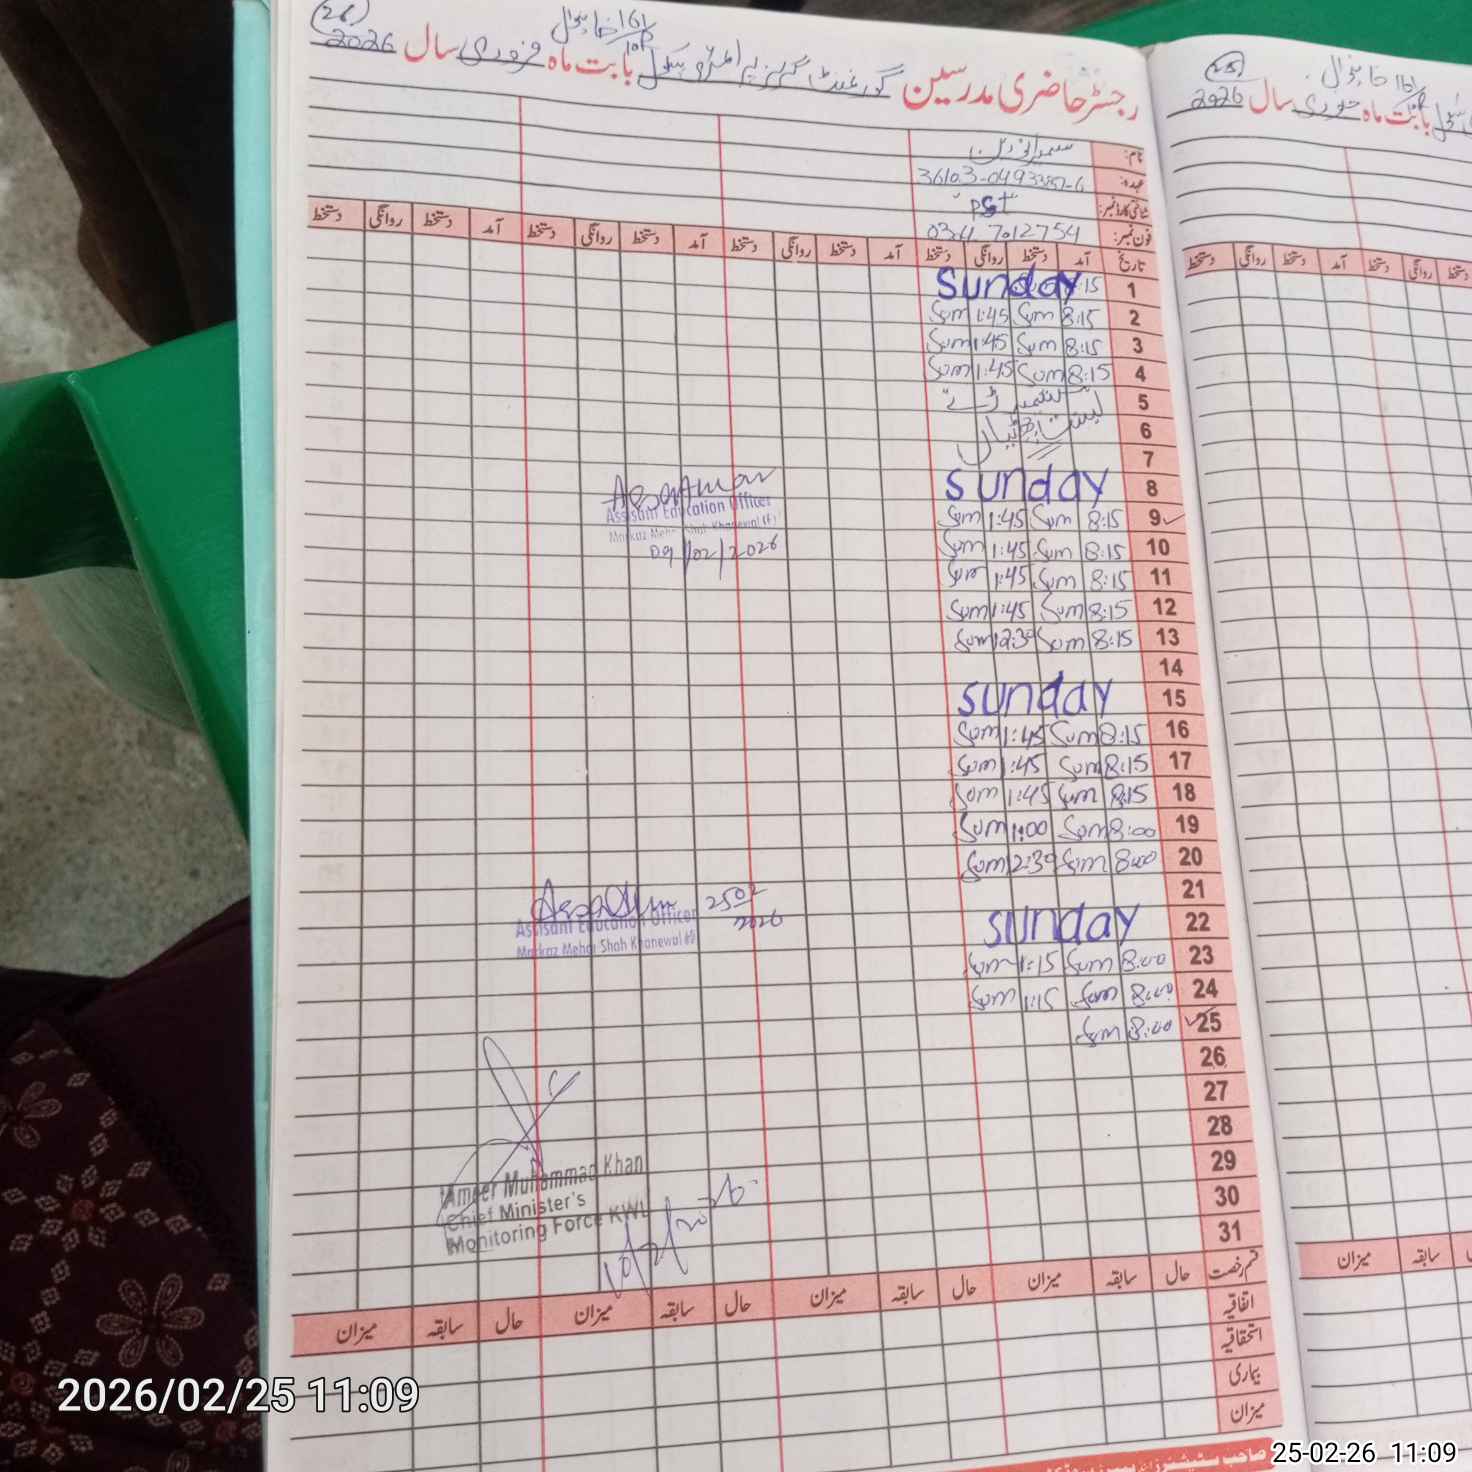 (26)
رجسٹر حاضری مدرسین گورنمنٹ گرلز پرائمری سکول 161/10R خانیوال بابت ماہ فروری سال 2026
نام:
عہدہ: 36103-0493357-6
شناختی کارڈ نمبر: "PST"
فون نمبر: 0341 7012754
تاریخ آمد دستخط روانگی دستخط آمد دستخط روانگی دستخط آمد دستخط روانگی دستخط آمد دستخط روانگی دستخط
1 Sunday :15
2 8:15 Sum 1:45 Sum
3 8:15 Sum 1:45 Sum
4 8:15 Sum 1:45 Sum
5 کشمیر ڈے
6
7
8 Sunday
9 8:15 Sum 1:45 Sum
10 8:15 Sum 1:45 Sum
11 8:15 Sum 1:45 Sum
12 8:15 Sum 1:45 Sum
13 8:15 Sum 12:30 Sum
14
15 Sunday
16 8:15 Sum 1:45 Sum
17 8:15 Sum 1:45 Sum
18 8:15 Sum 1:45 Sum
19 8:00 Sum 1:00 Sum
20 8:00 Sum 12:30 Sum
21
22 Sunday
23 8:00 Sum 1:15 Sum
24 8:00 Sum 1:15 Sum
25 8:00 Sum
26
27
28
29
30
31
Assistant Education Officer
Markaz Mehr Shah Khanewal (F)
09/02/2026
Assistant Education Officer
Markaz Mehr Shah Khanewal (F)
2502
2026
Ameer Muhammad Khan
Chief Minister's
Monitoring Force KWL
قسم رخصت حال سابقہ میزان حال سابقہ میزان حال سابقہ میزان حال سابقہ میزان
اتفاقیہ
استحقاقیہ
بیماری
میزان
(25)
161/10R خانیوال
بابت ماہ جنوری سال 2026
دستخط روانگی دستخط آمد دستخط روانگی دستخط
سابقہ میزان
2026/02/25 11:09
25-02-26 11:09